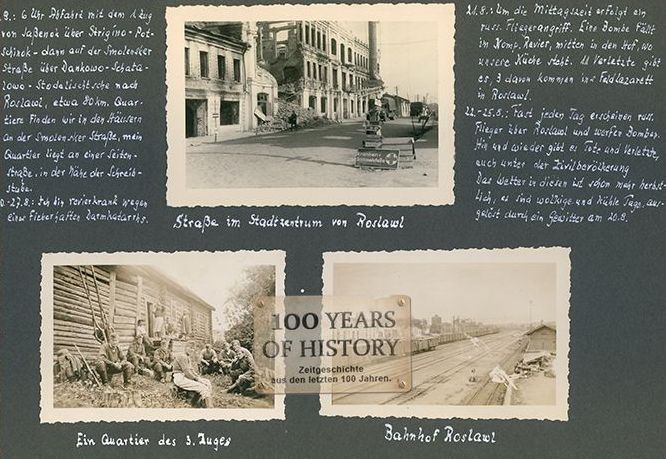 9.: 6 Uhr Abfahrt mit dem 1. Zug
von Jaßenok über Strigino-Pot-
schinok - dann auf der Smolensker
Straße über Dankowo-Schata-
lowo-Stodolischtsche nach
Roslawl, etwa 80 km. Quar-
tiere finden wir in den Häusern
an der Smolensker Straße, mein
Quartier liegt an einer Seiten-
straße, in der Nähe der Schreib-
stube.
0.-27.8.: Ich bin revierkrank wegen
eines fieberhaften Darmkatarrhs.
Straße im Stadtzentrum von Roslawl
21.8.: Um die Mittagszeit erfolgt ein
russ. Fliegerangriff. Eine Bombe fällt
im Komp. Revier, mitten in den Hof, wo
unsere Küche steht. 11 Verletzte gibt
es, 3 davon kommen ins Feldlazarett
in Roslawl.
22.-25.8.: Fast jeden Tag erscheinen russ.
Flieger über Roslawl und werfen Bomben.
Hin und wieder gibt es Tote und Verletzte,
auch unter der Zivilbevölkerung
Das Wetter in diesen ist schon mehr herbst-
lich, es sind wolkige und kühle Tage, aus-
gelöst durch ein Gewitter am 20.8.
100 YEARS
OF HISTORY
Zeitgeschichte
aus den letzten 100 Jahren.
Ein Quartier des 3. Zuges
Bahnhof Roslawl